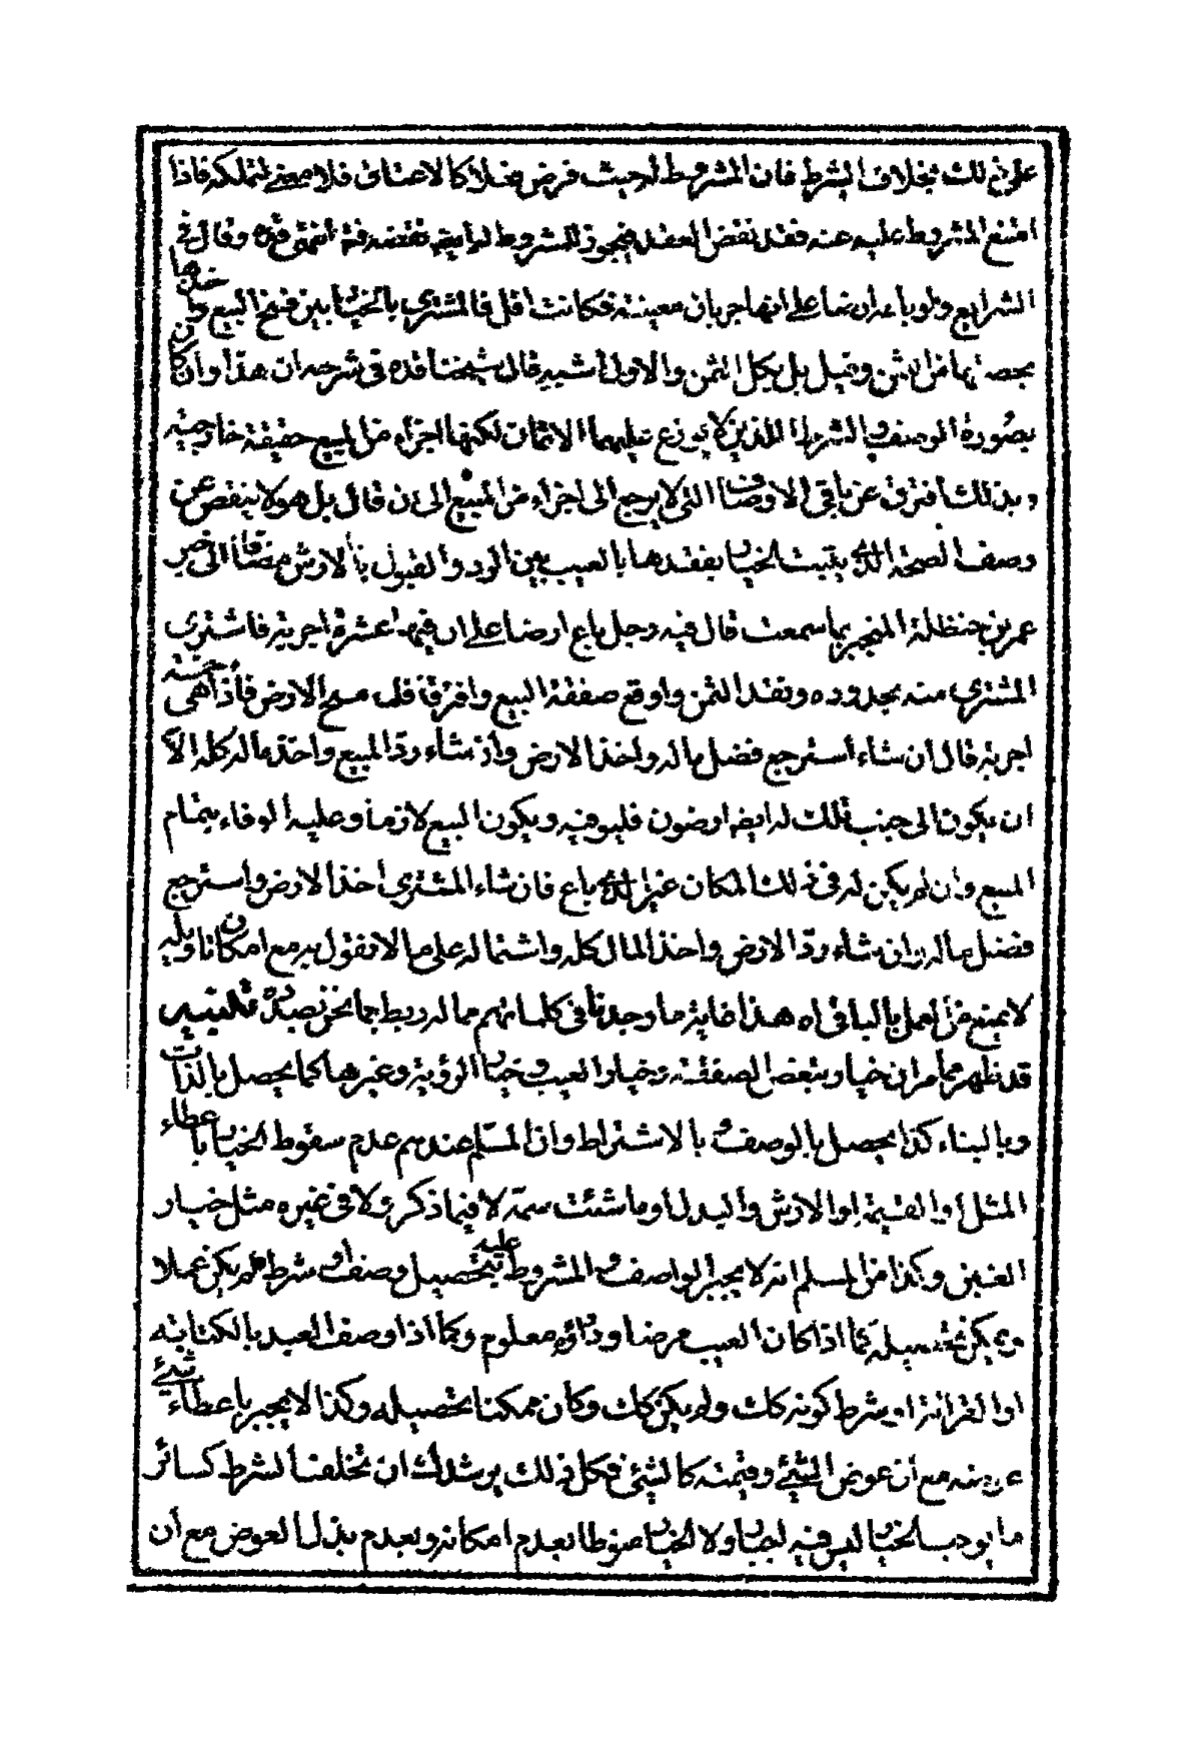 على ذلك بخلاف الشرط فان المشروط له حيث فرض فعلا كالاعتاق فلا معنى لتملكه فاذا
امتنع المشروط عليه عنه فقد نقض العقد فيجوز للمشروط له ايضا نقضه فتم انتهى قده وقال في
الشرايع ولو باع ارضا على انها جربان معينة فكانت اقل فالمشترى بالخيار بين فسخ البيع واخذها
بحصتها من الثمن وقيل بل بكل الثمن والاول اشبه قال شيخنا قده فى شرحه ان هذا وان كان
بصورة الوصف والشرط اللذين لا يوزع عليهما الاثمان لكنها اجزاء من المبيع حقيقة خارجية
وبذلك افترق عن باقى الاوصاف التى لا يرجع الى اجزاء من المبيع الى ان قال بل هو لا ينقص عن
وصف الصحة الذى يثبت الخيار بفقدها بالعيب بين الرد والقبول بالارش مضافا الى خبر
عمر بن حنظلة المنجبر بما سمعت قال فيه رجل باع ارضا على ان فيها عشرة اجربة فاشترى
المشترى منه بحدوده ونقد الثمن واوقع صفقة البيع وافترقا فلما مسح الارض فاذا هى خمسة
اجربة قال ان شاء استرجع فضل ماله واخذ الارض وان شاء رد المبيع واخذ ماله كله الا
ان يكون الى جنب تلك له ايضا ارضون فليوفيه ويكون البيع لازما وعليه الوفاء بتمام
المبيع وان لم يكن له فى ذلك المكان غير الذى باع فان شاء المشترى اخذ الارض واسترجع
فضل ماله وان شاء رد الارض واخذ المال كله واشتماله على ما لا نقول به مع امكان تاويله
لا يمنع من العمل بالباقى اه هذا غاية ما وجدنا فى كلماتهم مما له ربط بما نحن بصدده تنبيه
قد ظهر مما مر ان خيار تبعض الصفقة وخيار العيب وخيار الرؤية وغيرها كما يحصل بالذات
وبالبناء كذا يحصل بالوصف و بالاشتراط وان المسلم عندهم عدم سقوط الخيار باعطاء
المثل او القيمة او الارش والبدل او ما شئت سمه لا فيما ذكر ولا فى غيره مثل خيار
الغبن وكذا من المسلم انه لا يجبر الواصف والمشروط عليه بتحصيل وصف او شرط لم يكن عملا
ويمكن تحصيله كما اذا كان العيب مرضا ودواؤه معلوم وكما اذا وصف العبد بالكتابة
او القرائة او شرط كونه كك ولم يكن كك وكان ممكنا تحصيله وكذا لا يجبر باعطاء شيئ
عوضه مع ان عوض الشيئ وقيمته كالشيئ فكل ذلك يرشدك ان تخلف الشرط كسائر
ما يوجب الخيار ليس فيه اجبار ولا الخيار منوطا بعدم امكانه وبعدم بذل العوض مع ان